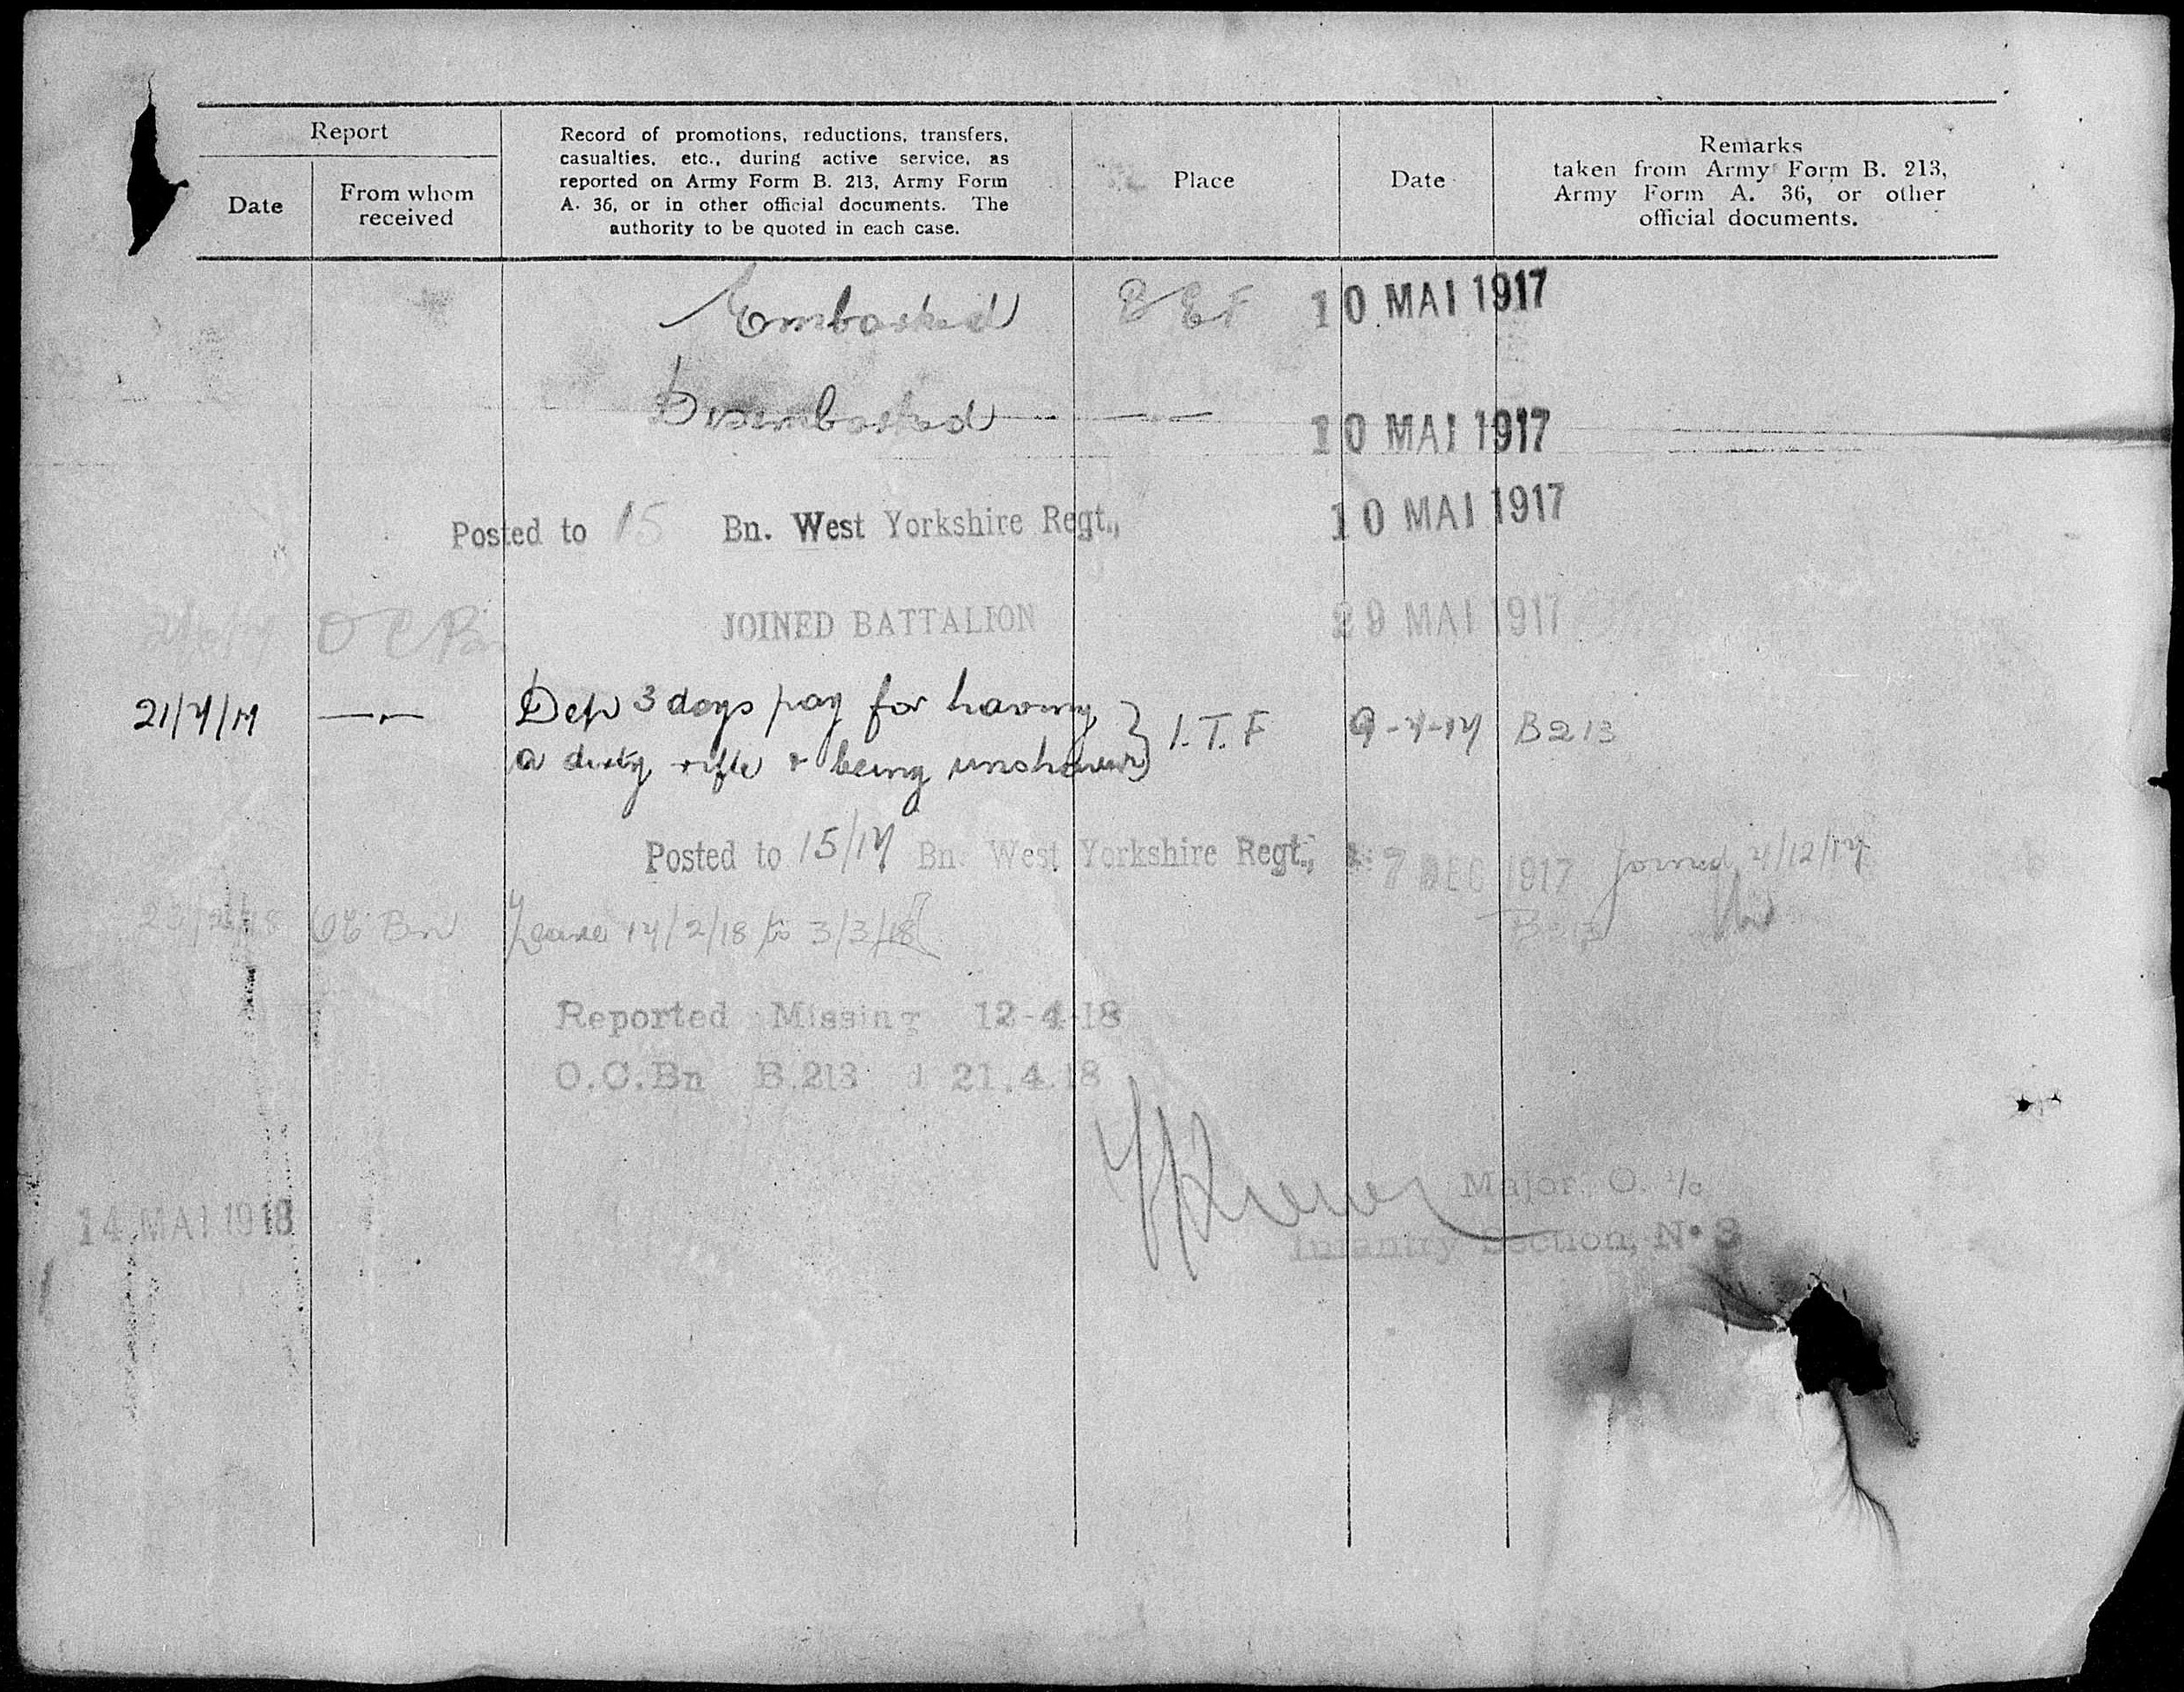 Report
Date
From whom
received
Record of promotions, reductions, transfers,
casualties, etc., during active service, as
reported on Army Form B. 213, Army Form
A. 36, or in other official documents. The
authority to be quoted in each case.
Place
Date
Remarks
taken from Army Form B. 213,
Army Form A. 36, or other
official documents.
Embarked BEF 10 MAI 1917
Disembarked 10 MAI 1917
Posted to 15 Bn. West Yorkshire Regt., 10 MAI 1917
O C Bn JOINED BATTALION 29 MAI 1917
21/7/17 —"— Dep 3 days pay for having
a dirty rifle & being unshaven } I.T.F 9-7-17 B213
Posted to 15/17 Bn. West Yorkshire Regt., 7 DEC 1917 Joined 7/12/17
23/2/18 OC Bn Leave 17/2/18 to 3/3/18 B213
Reported Missing 12-4-18
O.C.Bn B.213 d 21.4.18
Major O. i/c
14 MAI 1918
Infantry Section, No 3